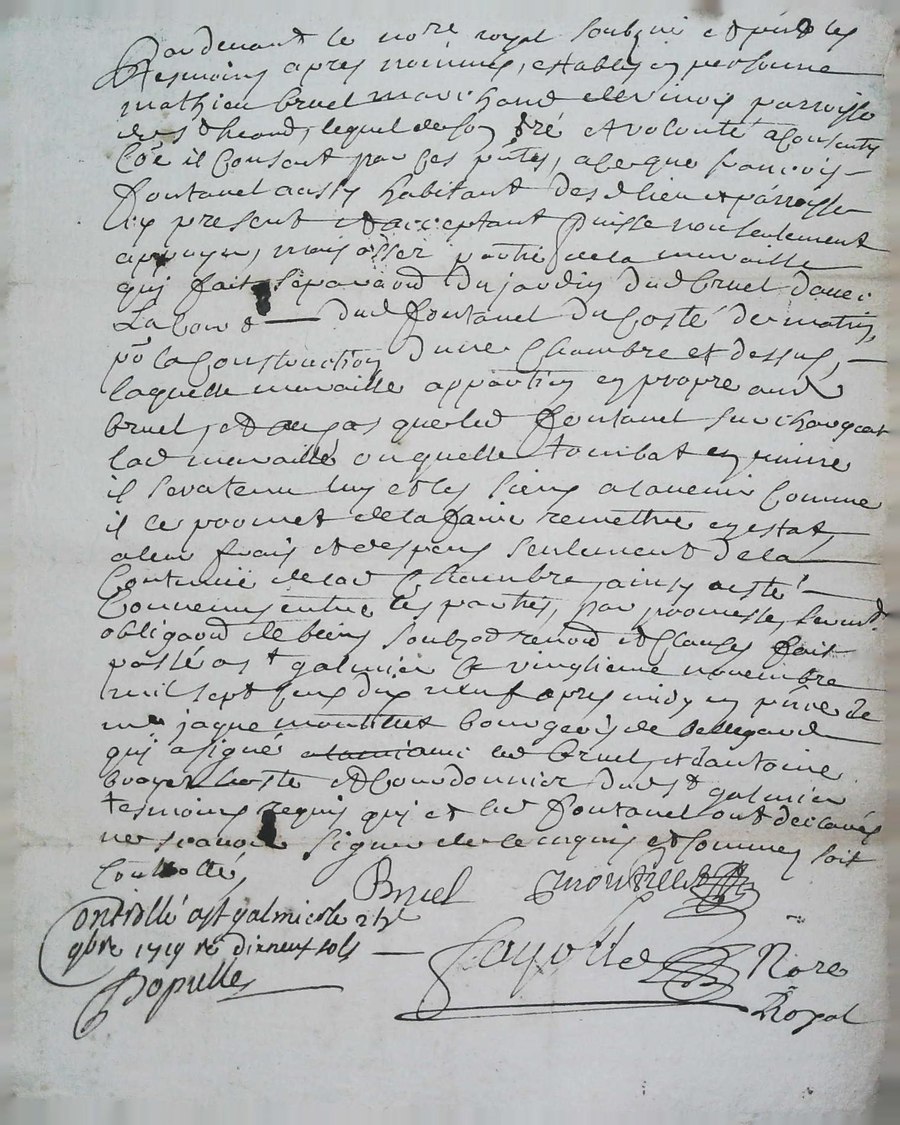 Pardevant le nore royal soubzné et pnts les
tesmoins apres nommes, estably en personne
mathieu bruel marchand parroisse
lequel de son gré et volonté a consenty
Coe il Consent par ces pntes, a ce que francois
fontanel aussy habitant desd lieu et parroisse
icy present et acceptant puisse non seulement
appuyer, mais partie de la muraille
qui fait separaon du jardin dud bruel davec
La Cour dud fontanel du Costé de matin,
po la Construction dune Chambre et dessus,
laquelle muraille appartien en propre aud
bruel, et au cas que led fontanel surchargeat
lad muraille ou quelle tombat en ruine
il sera tenu luy et les siens a lavenir Comme
il le promet de la faire remettre en estat
a leur frais et despens seulement de la
Contenue de lad Chambre, ainsy esté
Convenus entre les parties, par promesse, sermt
obligaon de biens, soubz renon et Clauses fait
passé a st galmier le vingtieme novembre
mil sept cens dix neuf apres midy en pnce de
me jaque montillet bourgeois de bellegarde
qui a signé avec led bruel, et dantoine
boayer hoste et Courdonnier dud st galmier
tesmoins requis qui et led fontanel ont declarés
ne scavoir signer de ce enquis et sommes soit
Controllé
Bruel montillet
Controllé a st galmier le
9bre 1719 ré dix neuf sols
Bopulle
Fayolle Nore
Royal